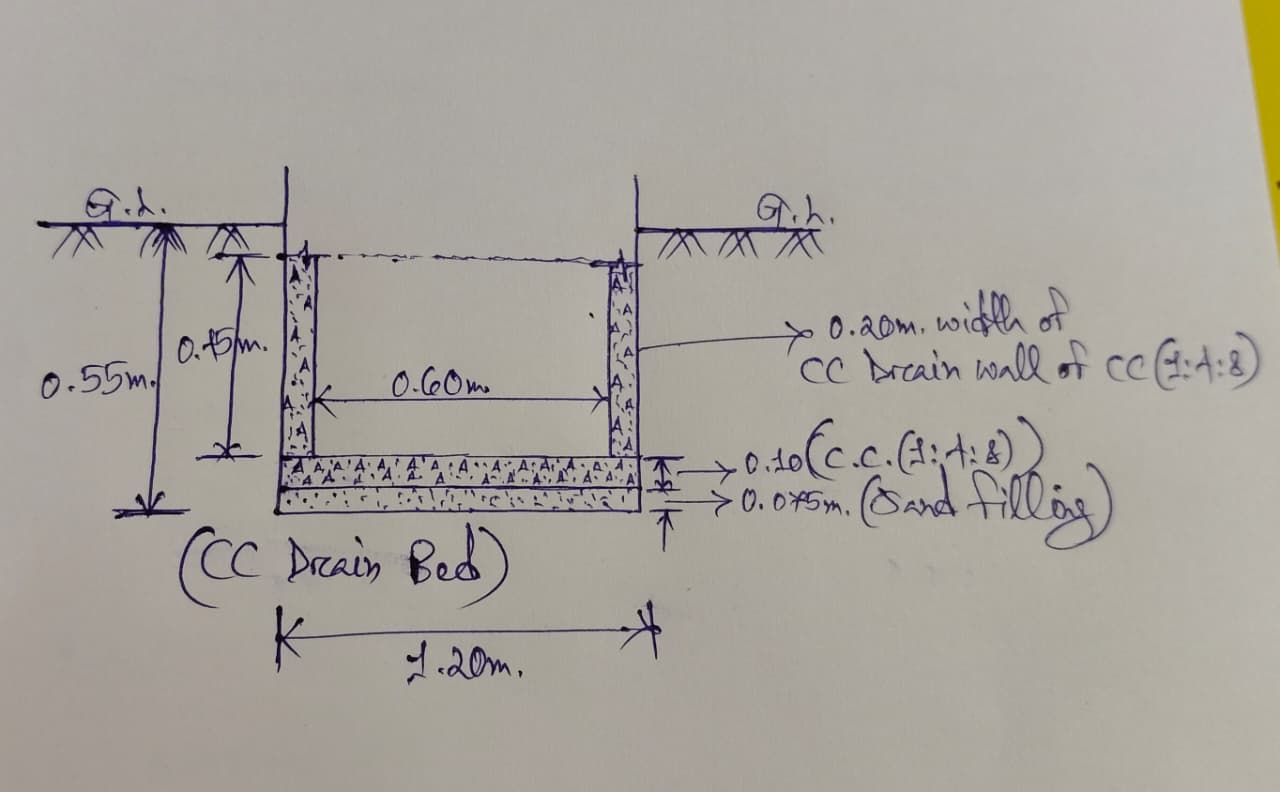 G.L.
G.L.
0.45m.
0.55m.
0.60m.
0.20m. width of
CC Drain wall of CC (1:4:8)
0.10 (C.C. (1:4:8))
0.075m. (Sand filling)
(CC Drain Bed)
1.20m.